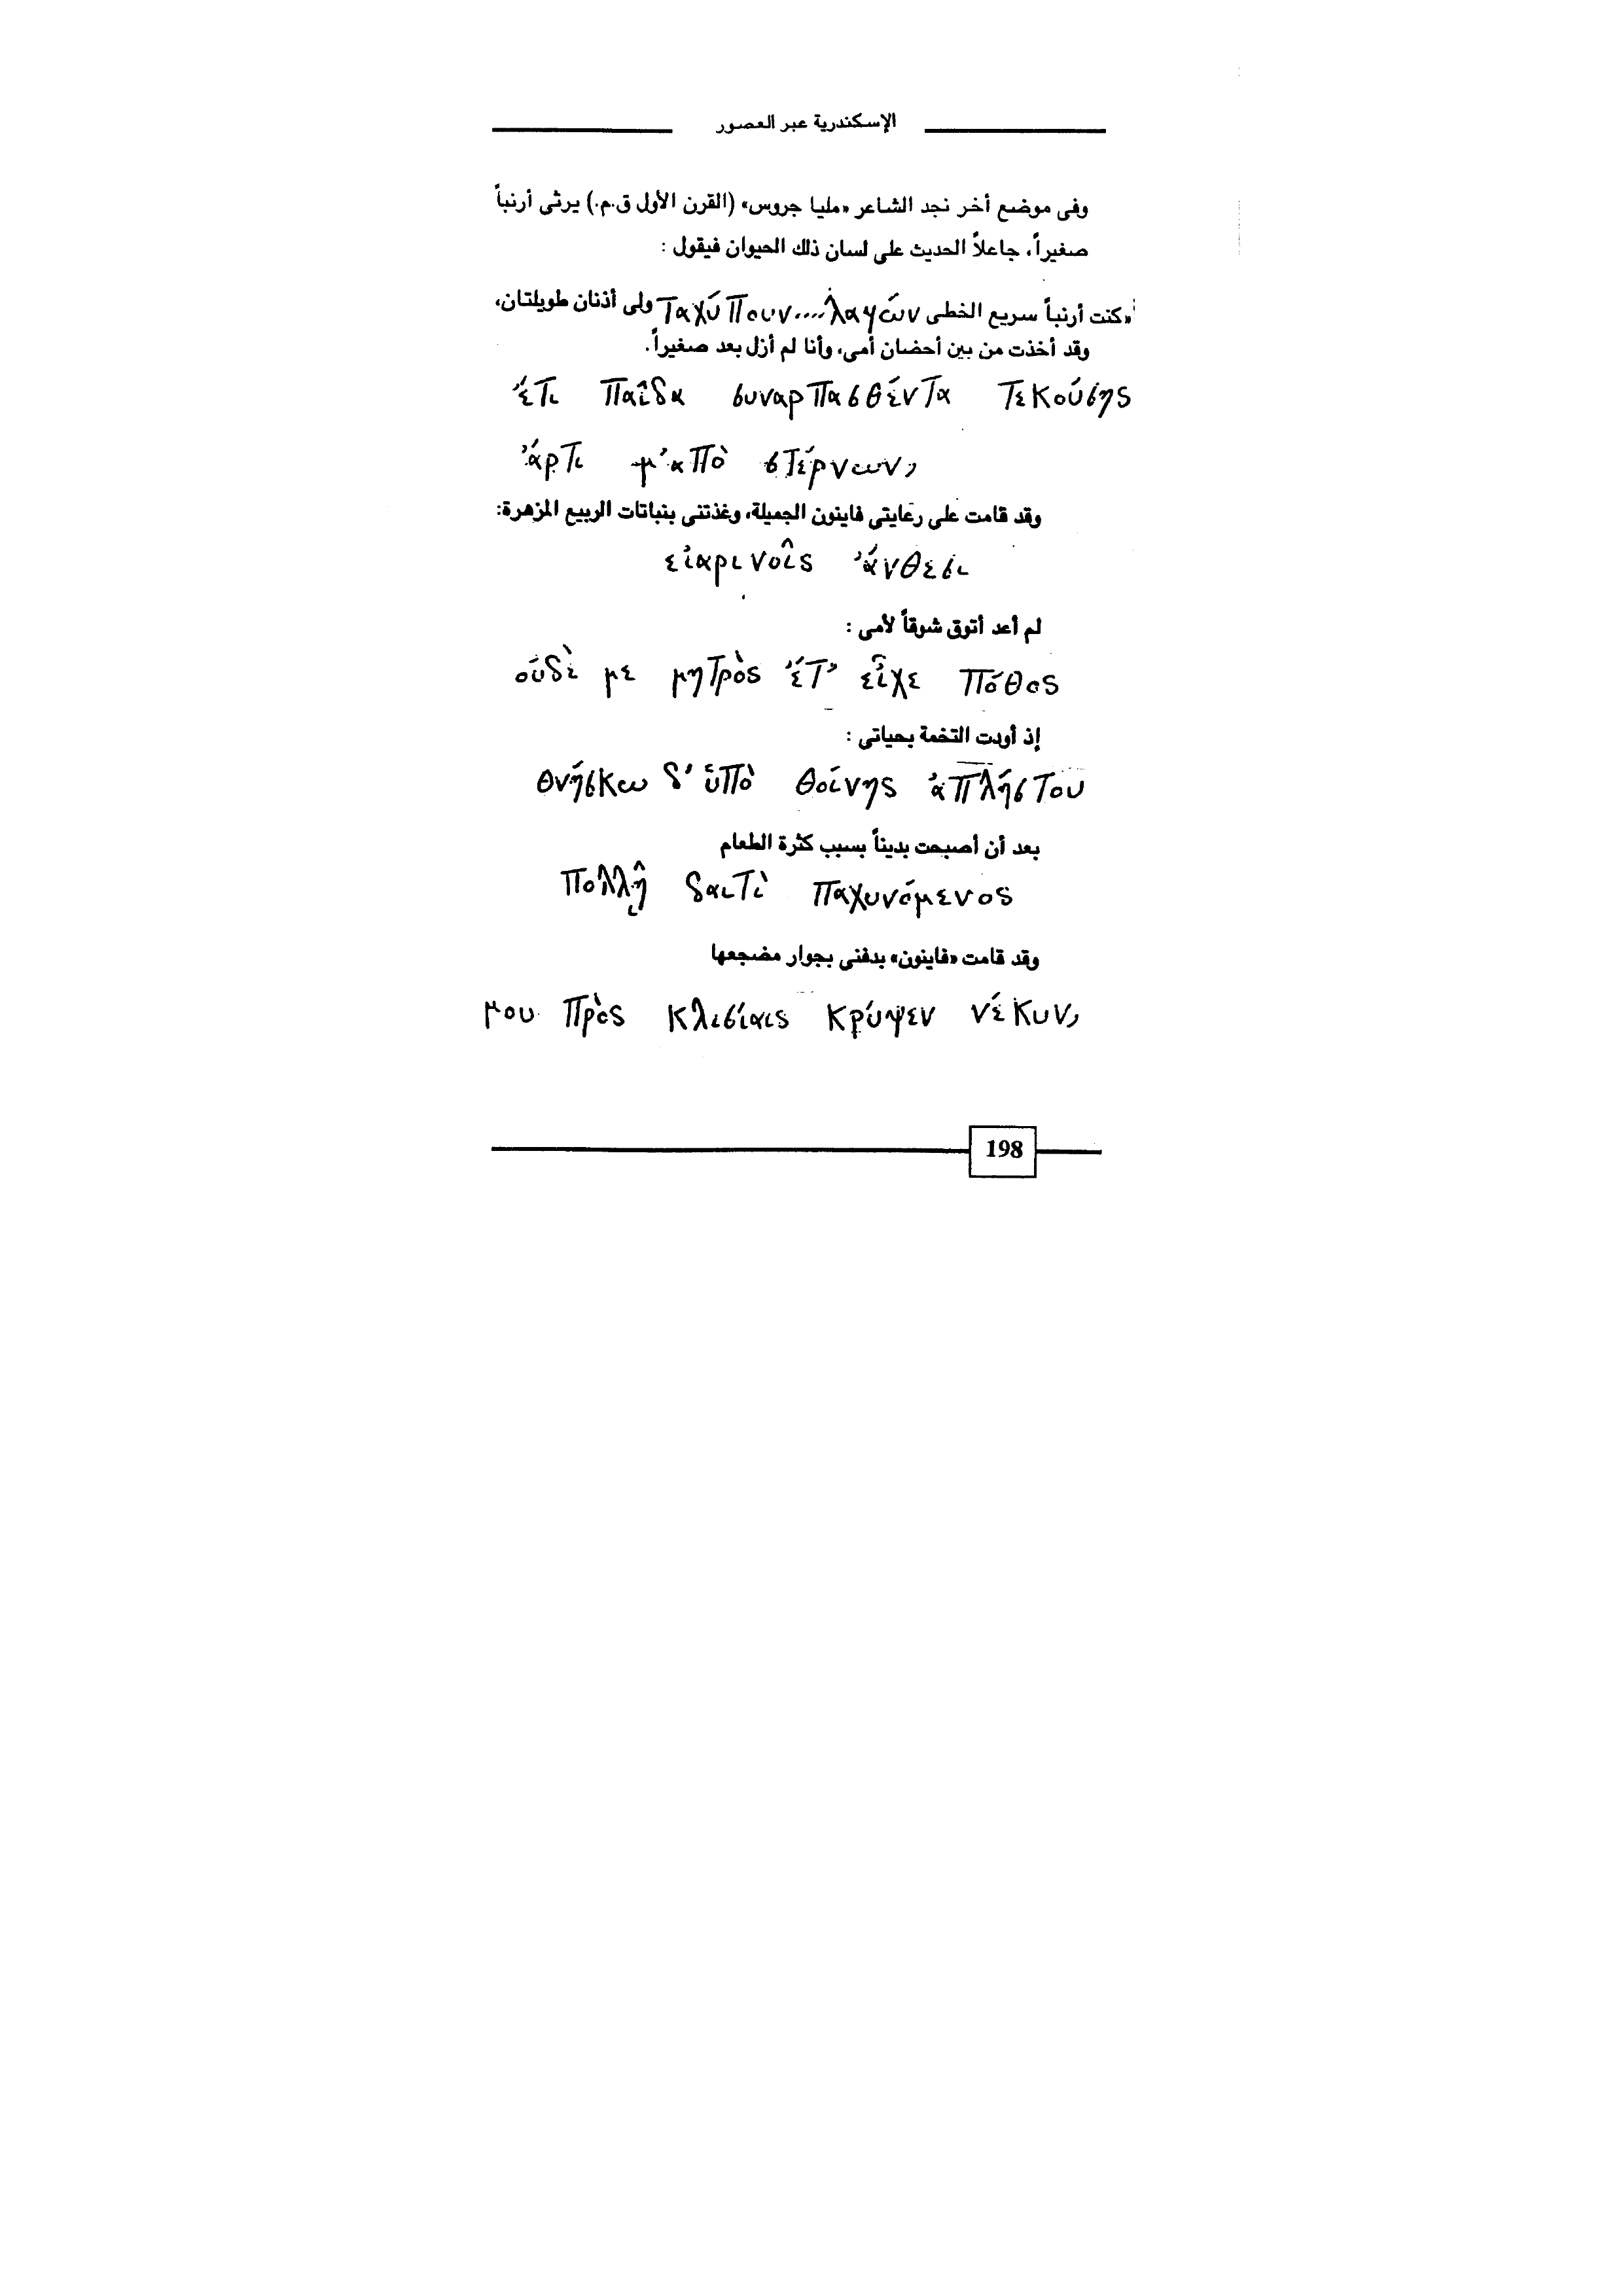 الإسكندرية عبر العصور
وفى موضع أخر نجد الشاعر «مليا جروس» (القرن الأول ق.م.) يرثى أرنباً
صغيراً، جاعلاً الحديث على لسان ذلك الحيوان فيقول :
«كنت أرنباً سريع الخطى Ταχύπουν....λαγών ولى أذنان طويلتان،
وقد أخذت من بين أحضان أمى، وأنا لم أزل بعد صغيراً.
έτι παῖδα συναρπασθέντα τεκούσης
άρτι μ' απὸ στέρνων,
وقد قامت على رعايتي فاينون الجميلة، وغذتنى بنباتات الربيع المزهرة:
εἰαρινοῖς ἄνθεσι
لم أعد أتوق شوقاً لأمى :
οὐδὲ με μητρὸς ἔτ' εἶχε πόθος
إذ أودت التخمة بحياتى :
θνήσκω δ' ὑπὸ θοίνης ἀπλήστου
بعد أن أصبحت بديناً بسبب كثرة الطعام
πολλῇ δαιτὶ παχυνόμενος
وقد قامت «فاينون» بدفنى بجوار مضجعها
μου πρὸς κλισίαις κρύψεν νέκυν,
198